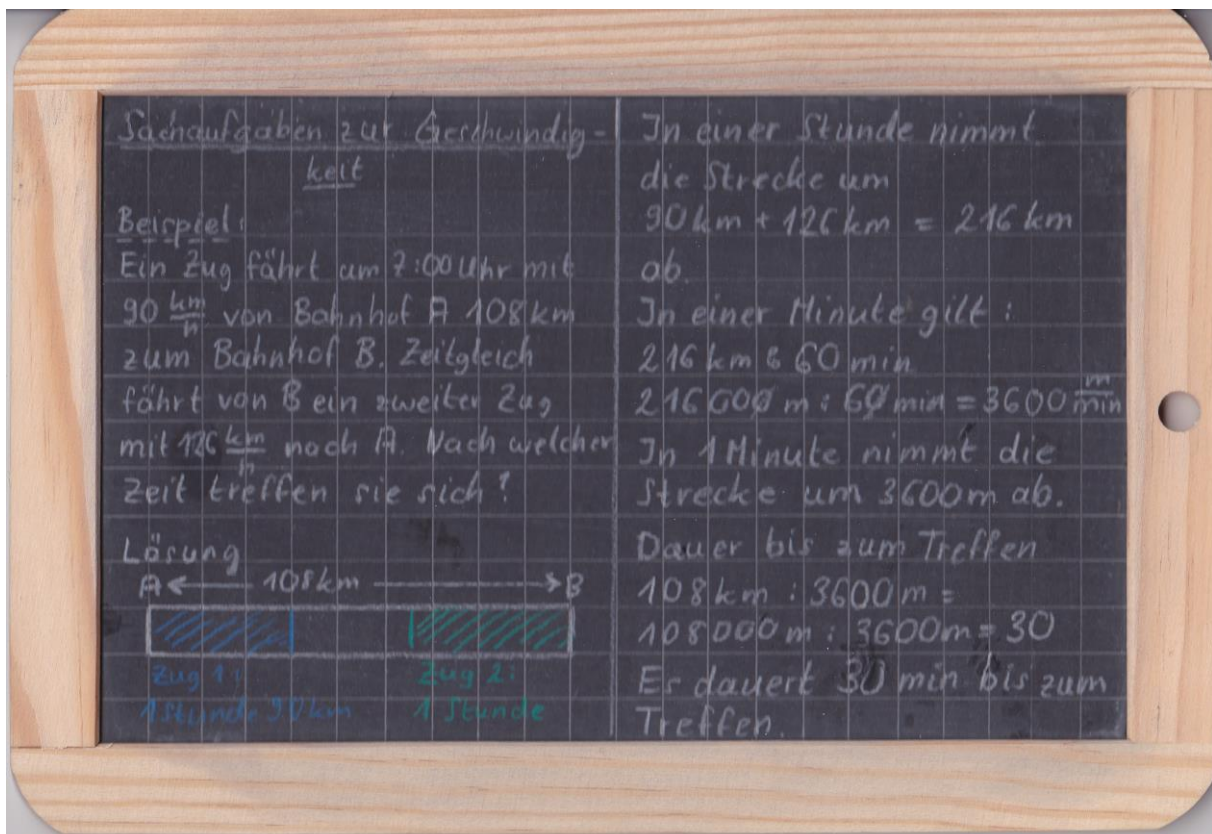 Sachaufgaben zur Geschwindig-
keit
Beispiel:
Ein Zug fährt um 7:00 Uhr mit
90 km/h von Bahnhof A 108 km
zum Bahnhof B. Zeitgleich
fährt von B ein zweiter Zug
mit 126 km/h nach A. Nach welcher
Zeit treffen sie sich?
Lösung
A ← 108 km → B
Zug 1: Zug 2:
1 Stunde 90 km 1 Stunde
In einer Stunde nimmt
die Strecke um
90 km + 126 km = 216 km
ab.
In einer Minute gilt:
216 km : 60 min
216000 m : 60 min = 3600 m/min
In 1 Minute nimmt die
Strecke um 3600 m ab.
Dauer bis zum Treffen
108 km : 3600 m =
108000 m : 3600 m = 30
Es dauert 30 min bis zum
Treffen.